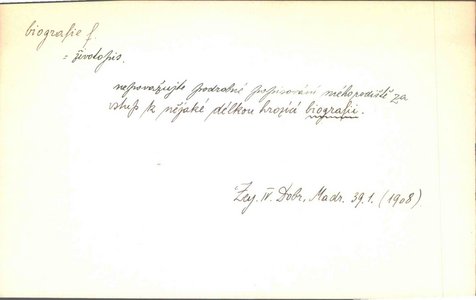 biografie f.
= životopis.
nepovažujte podrobné popisování mého rodiště za
vstup k nějaké délkou hrozící biografii.
Zey. IV. Dobr. Madr. 39.1. (1908)